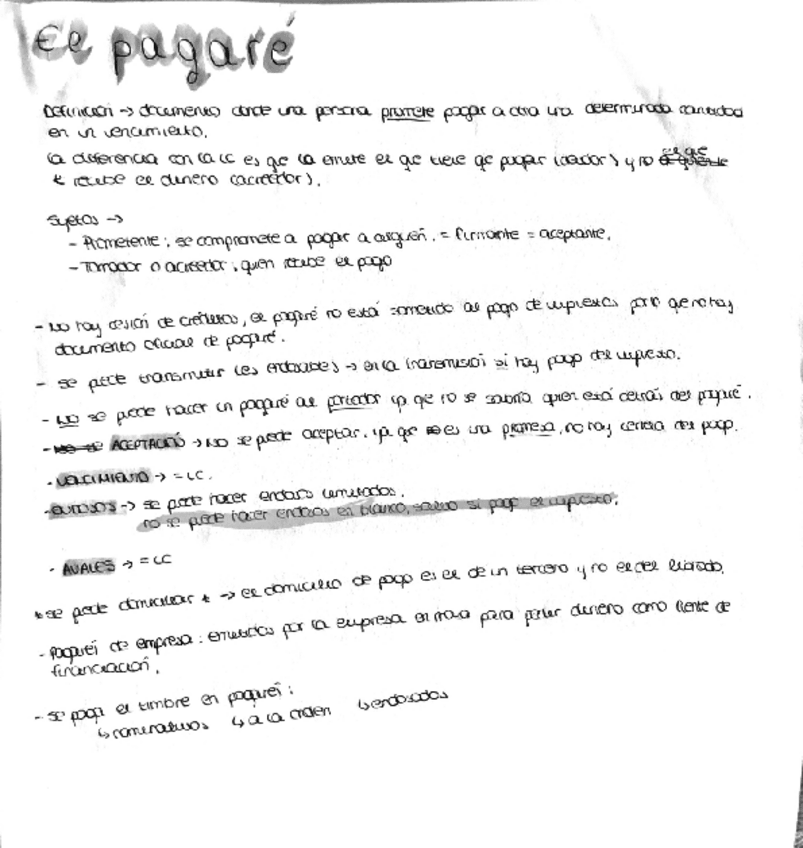 El pagaré
Definición → documento donde una persona promete pagar a otra una determinada cantidad
en un vencimiento.
La diferencia con la LC es que la emite el que tiene que pagar (deudor) y no el que
recibe el dinero (acreedor).
Sujetos →
- Prometente: se compromete a pagar a alguien. = firmante = aceptante.
- Tomador o acreedor: quien recibe el pago
- No hay cesión de créditos, el pagaré no está sometido al pago de impuestos por lo que no hay
documento oficial de pagaré.
- se puede transmitir (es endosable) → en la transmisión sí hay pago del impuesto.
- No se puede hacer un pagaré al portador ya que no se sabría quien está detrás del pagaré.
- ACEPTACIÓN → No se puede aceptar, ya que es una promesa, no hay certeza del pago.
- VENCIMIENTO → = LC.
- ENDOSOS → se puede hacer endoso
no se puede hacer endosos en blanco, salvo si paga el impuesto.
- AVALES → = LC
* se puede domiciliar * → el domicilio de pago es el de un tercero y no el del librado.
- Pagarés de empresa: emitidos por la empresa en masa para pedir dinero como fuente de
financiación.
- se paga el timbre en pagarés:
↳ nominativos ↳ a la orden ↳ endosados